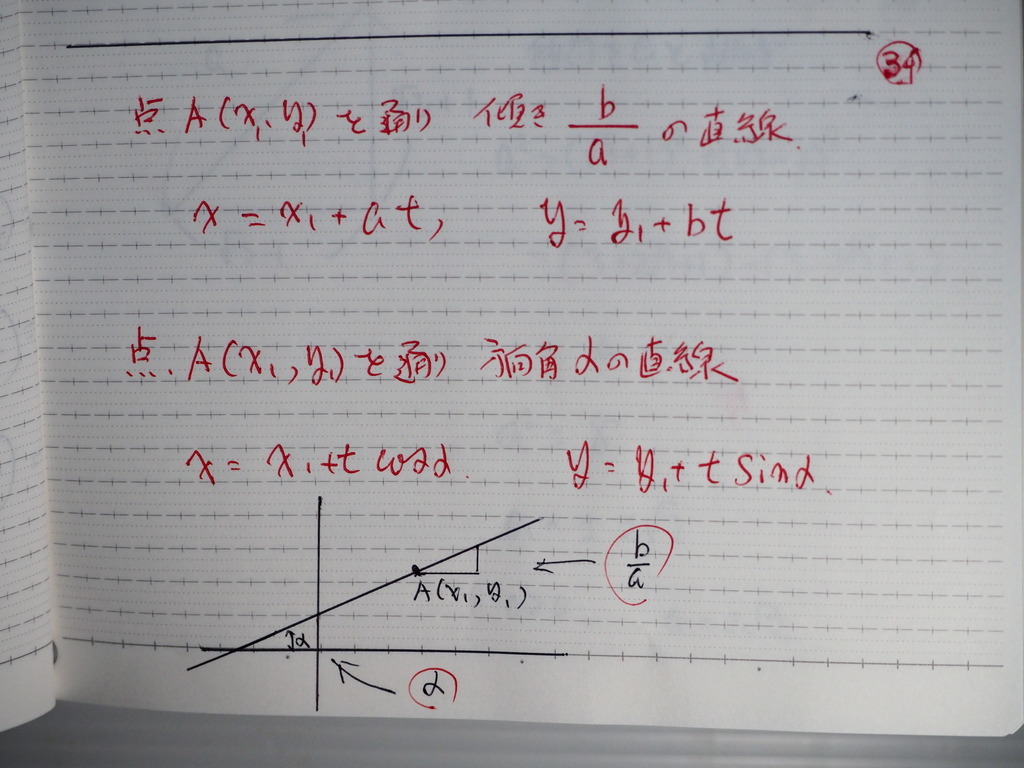 34
点 A(x₁, y₁) を通り 傾き b/a の直線
x = x₁ + at, y = y₁ + bt
点 A(x₁, y₁) を通り 方向角 α の直線
x = x₁ + t cos α. y = y₁ + t sin α.
b/a
A(x₁, y₁)
α
α